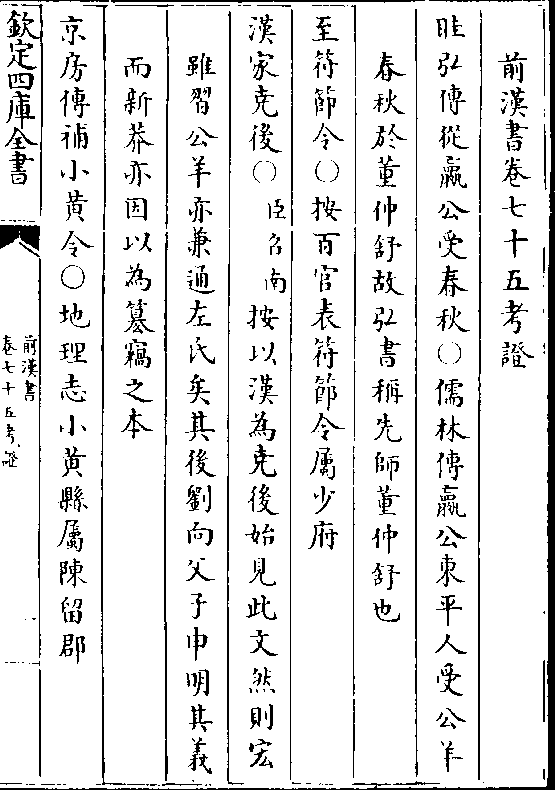 前漢書卷七十五考證
眭弘傳從嬴公受春秋○儒林傳嬴公東平人受公羊
春秋於董仲舒故弘書稱先師董仲舒也
至符節令○按百官表符節令屬少府
漢家堯後○臣召南按以漢為堯後始見此文然則宏
雖習公羊亦兼通左氏矣其後劉向父子申明其義
而新莽亦因以為篡竊之本
京房傳補小黃令○地理志小黃縣屬陳留郡
欽定四庫全書
前漢書
卷七十五考證